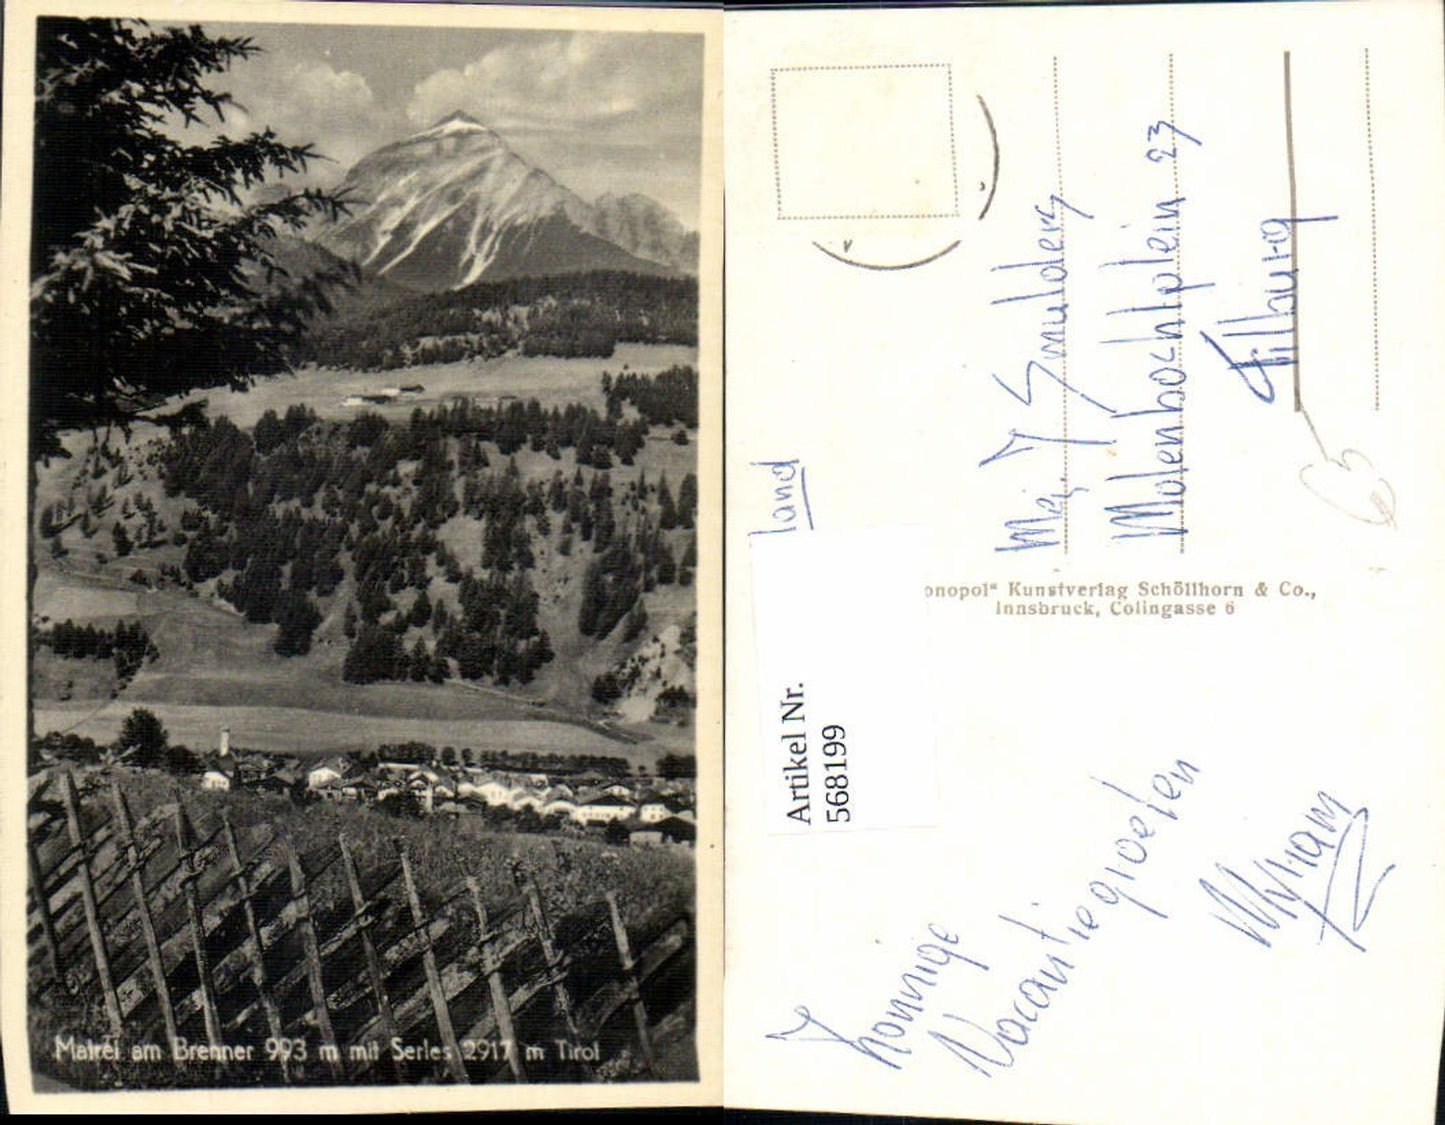 Matrei am Brenner 993 m mit Serles 2917 m Tirol
Mej. J Smulders
Molenbochtplein 23
Tilburg
land
onopol" Kunstverlag Schöllhorn & Co.,
Innsbruck, Colingasse 6
Artikel Nr.
568199
Zonnige
Vacantiegroeten
Myriam